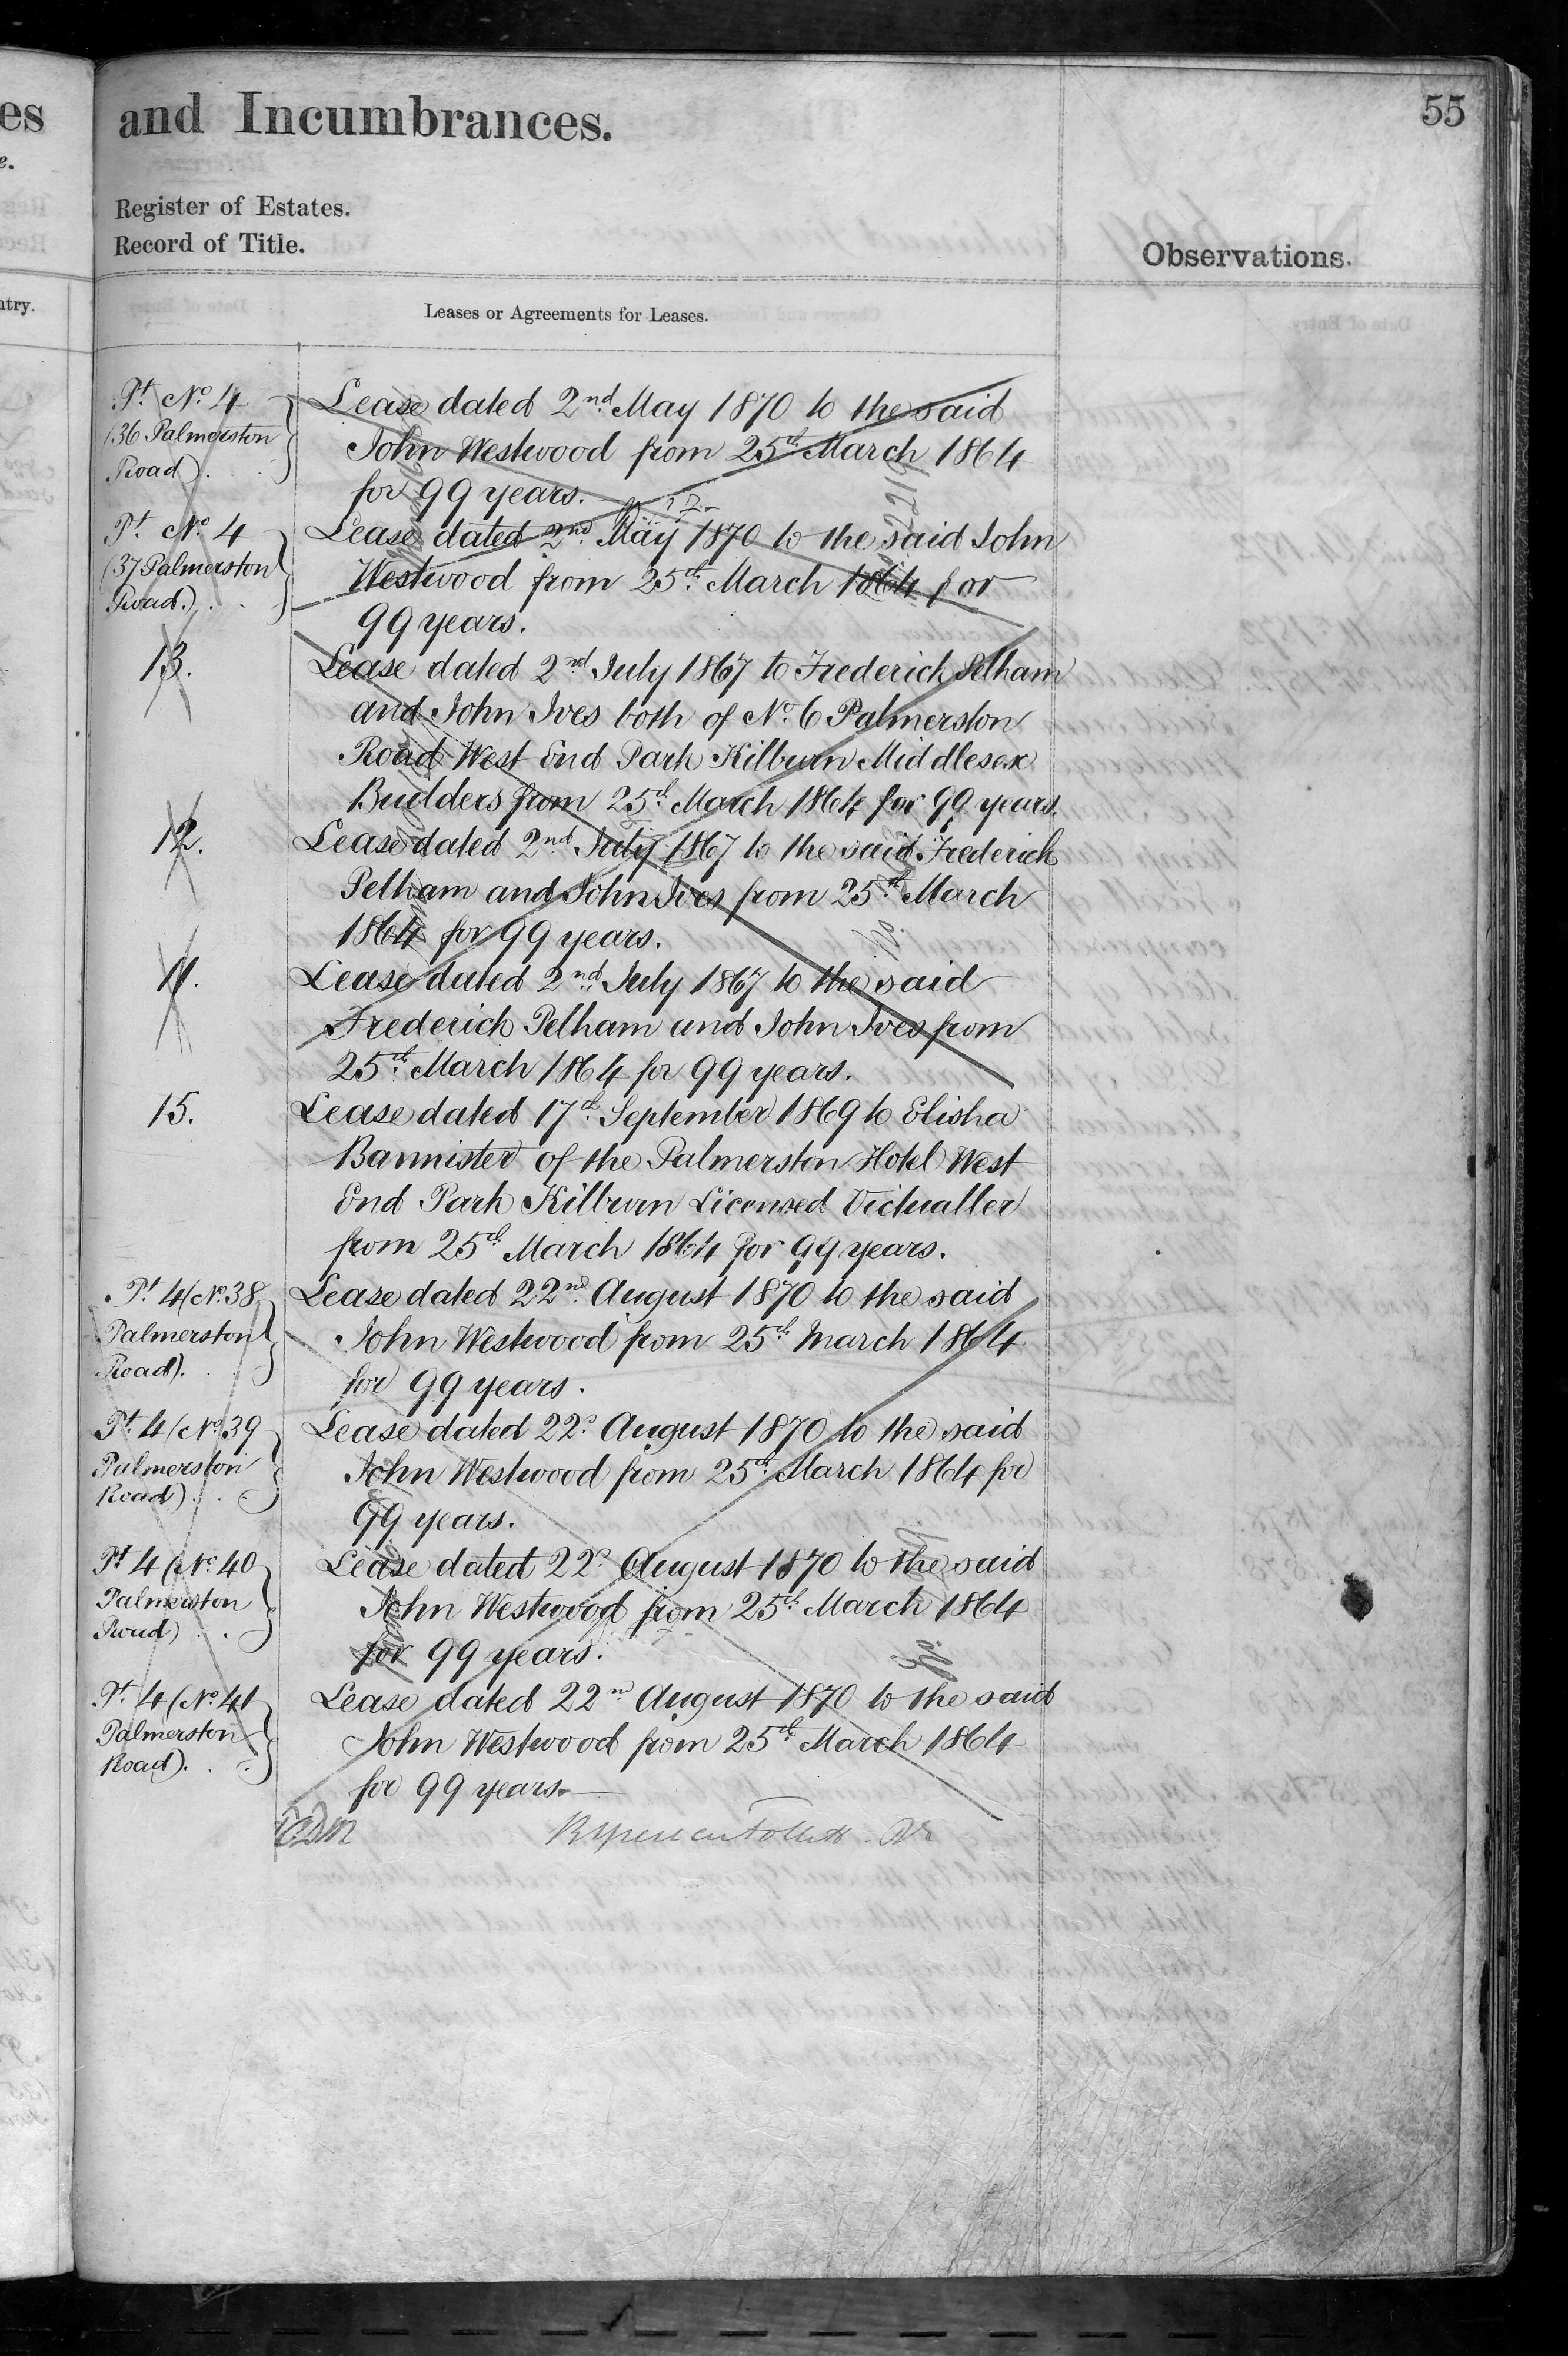 es and Incumbrances. 55
e.
Register of Estates.
Record of Title.
Observations.
ntry.
Leases or Agreements for Leases.
Pt. No. 4 Lease dated 2nd May 1870 to the said
(36 Palmerston John Westwood from 25th March 1864
Road) . . for 99 years.
Pt. No. 4 Lease dated 2nd May 1870 to the said John
(37 Palmerston Westwood from 25th March 1864 for
Road.) . . 99 years.
13. Lease dated 2nd July 1867 to Frederick Pelham
and John Ives both of No. 6 Palmerston
Road West End Park Kilburn Middlesex
Builders from 25th March 1864 for 99 years.
12. Lease dated 2nd July 1867 to the said Frederick
Pelham and John Ives from 25th March
1864 for 99 years.
11. Lease dated 2nd July 1867 to the said
Frederick Pelham and John Ives from
25th March 1864 for 99 years.
15. Lease dated 17th September 1869 to Elisha
Bannister of the Palmerston Hotel West
End Park Kilburn Licensed Victualler
from 25th March 1864 for 99 years.
Pt. 4 (No. 38 Lease dated 22nd August 1870 to the said
Palmerston John Westwood from 25th March 1864
Road). . for 99 years.
Pt. 4 (No. 39 Lease dated 22d August 1870 to the said
Palmerston John Westwood from 25th March 1864 for
Road) . . 99 years.
Pt 4 (No. 40 Lease dated 22d August 1870 to the said
Palmerston John Westwood from 25th March 1864
Road) . . for 99 years.
Pt. 4 (No. 41 Lease dated 22nd August 1870 to the said
Palmerston John Westwood from 25th March 1864
Road). . for 99 years.